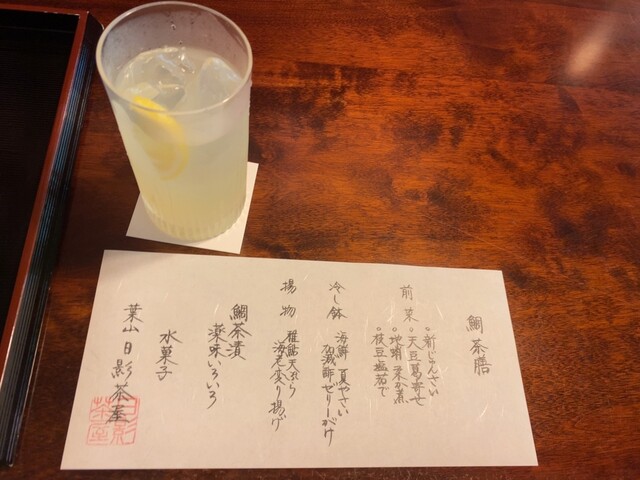 鯛茶膳
前菜
・新じゅんさい
・天豆葛寄せ
・地蛸柔か煮
・枝豆塩茹で
冷し鉢
海鮮 夏やさい
加減酢ゼリーがけ
揚物
稚鮎天ぷら
海老変り揚げ
鯛茶漬
薬味いろいろ
水菓子
葉山日影茶屋
日影茶屋